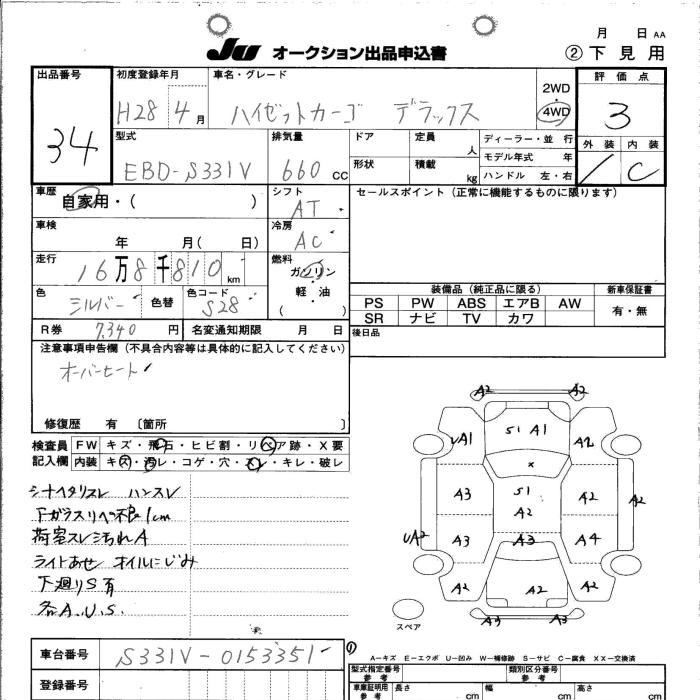 月 日 AA
JU オークション出品申込書 ② 下見用
出品番号 初度登録年月 車名・グレード 評価点
34 H28 4月 ハイゼットカーゴ デラックス 2WD 4WD 3
型式 排気量 ドア 定員 人 ディーラー・並行 外装 内装
EBD-S331V 660 CC 形状 積載 kg モデル年式 年 C
ハンドル 左・右
車歴 自家用・( ) シフト AT セールスポイント(正常に機能するものに限ります)
車検 年 月( 日) 冷房 AC
走行 16万8千810km 燃料 ガソリン
軽油
( )
色 シルバー 色替 色コード S28
装備品(純正品に限る) 新車保証書
PS PW ABS エアB AW 有・無
SR ナビ TV カワ
R券 7,340円 名変通知期限 月 日 後日品
注意事項申告欄(不具合内容等は具体的に記入してください)
オーバーヒート
修復歴 有 〔箇所 〕
検査員 FW キズ・飛石・ヒビ割・リペア跡・X要
記入欄 内装 キズ・汚レ・コゲ・穴・スレ・キレ・破レ
シートヘタリスレ ハンスレ
Fガラスリペ不良1cm
荷室スレ汚れA
ライトあせ オイルにじみ
下廻りS有
各A.U.S.
A2 A2
UA1 S1 A1 A2
X
A3 S1 A2 A2 A2
UA2 A3 A3 A4
A2 A2 A2
A3 A3
スペア
車台番号 S331V-0153351
登録番号
A－キズ E－エクボ U－凹み W－補修跡 S－サビ C－腐食 XX－交換済
型式指定番号 参考 類別区分番号 参考
車庫証明用 参考 長さ cm 幅 cm 高さ cm